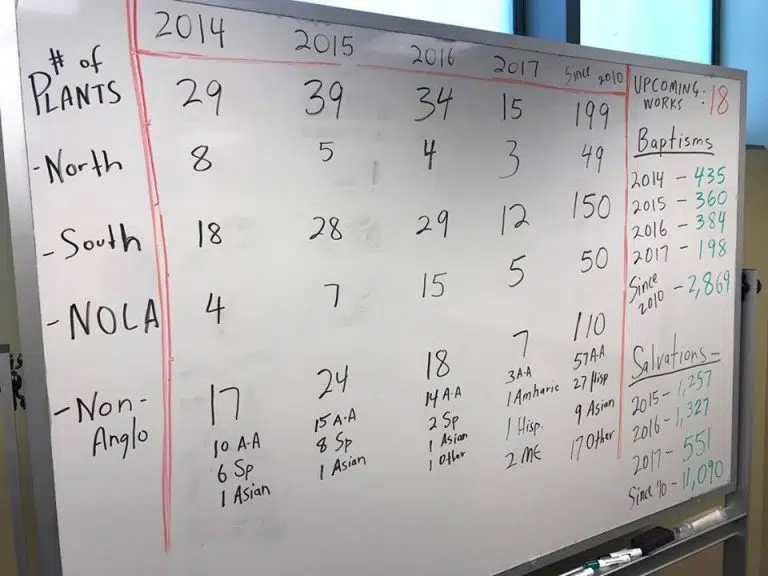 2014 2015 2016 2017 Since 2010
# of PLANTS 29 39 34 15 199
-North 8 5 4 3 49
-South 18 28 29 12 150
-NOLA 4 7 15 5 50
-Non-Anglo 17 24 18 7 110
10 A-A 15 A-A 14 A-A 3 A-A 57 A-A
6 Sp 8 Sp 2 Sp 1 Amharic 27 Hisp
1 Asian 1 Asian 1 Asian 1 Hisp. 9 Asian
1 Other 2 ME 17 Other
UPCOMING WORKS: 18
Baptisms
2014 - 435
2015 - 360
2016 - 384
2017 - 198
Since 2010 - 2,869
Salvations -
2015 - 1,257
2016 - 1,327
2017 - 551
Since '10 - 11,090